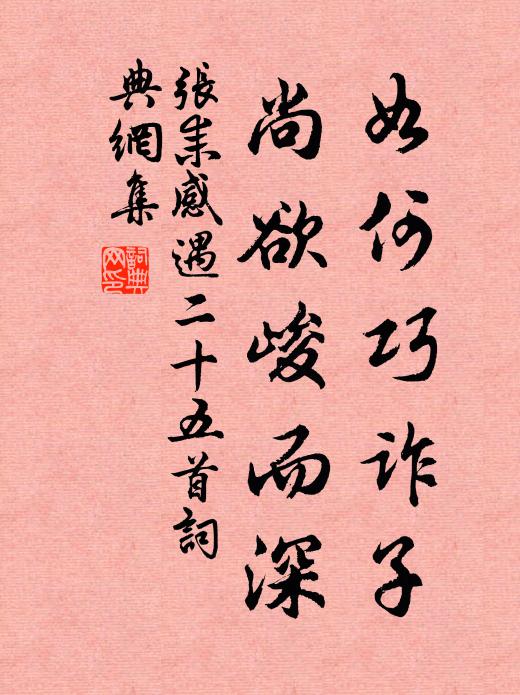 如何巧诈子
尚欲峻而深
張耒感遇二十五首詞
典網集
詞典
网印